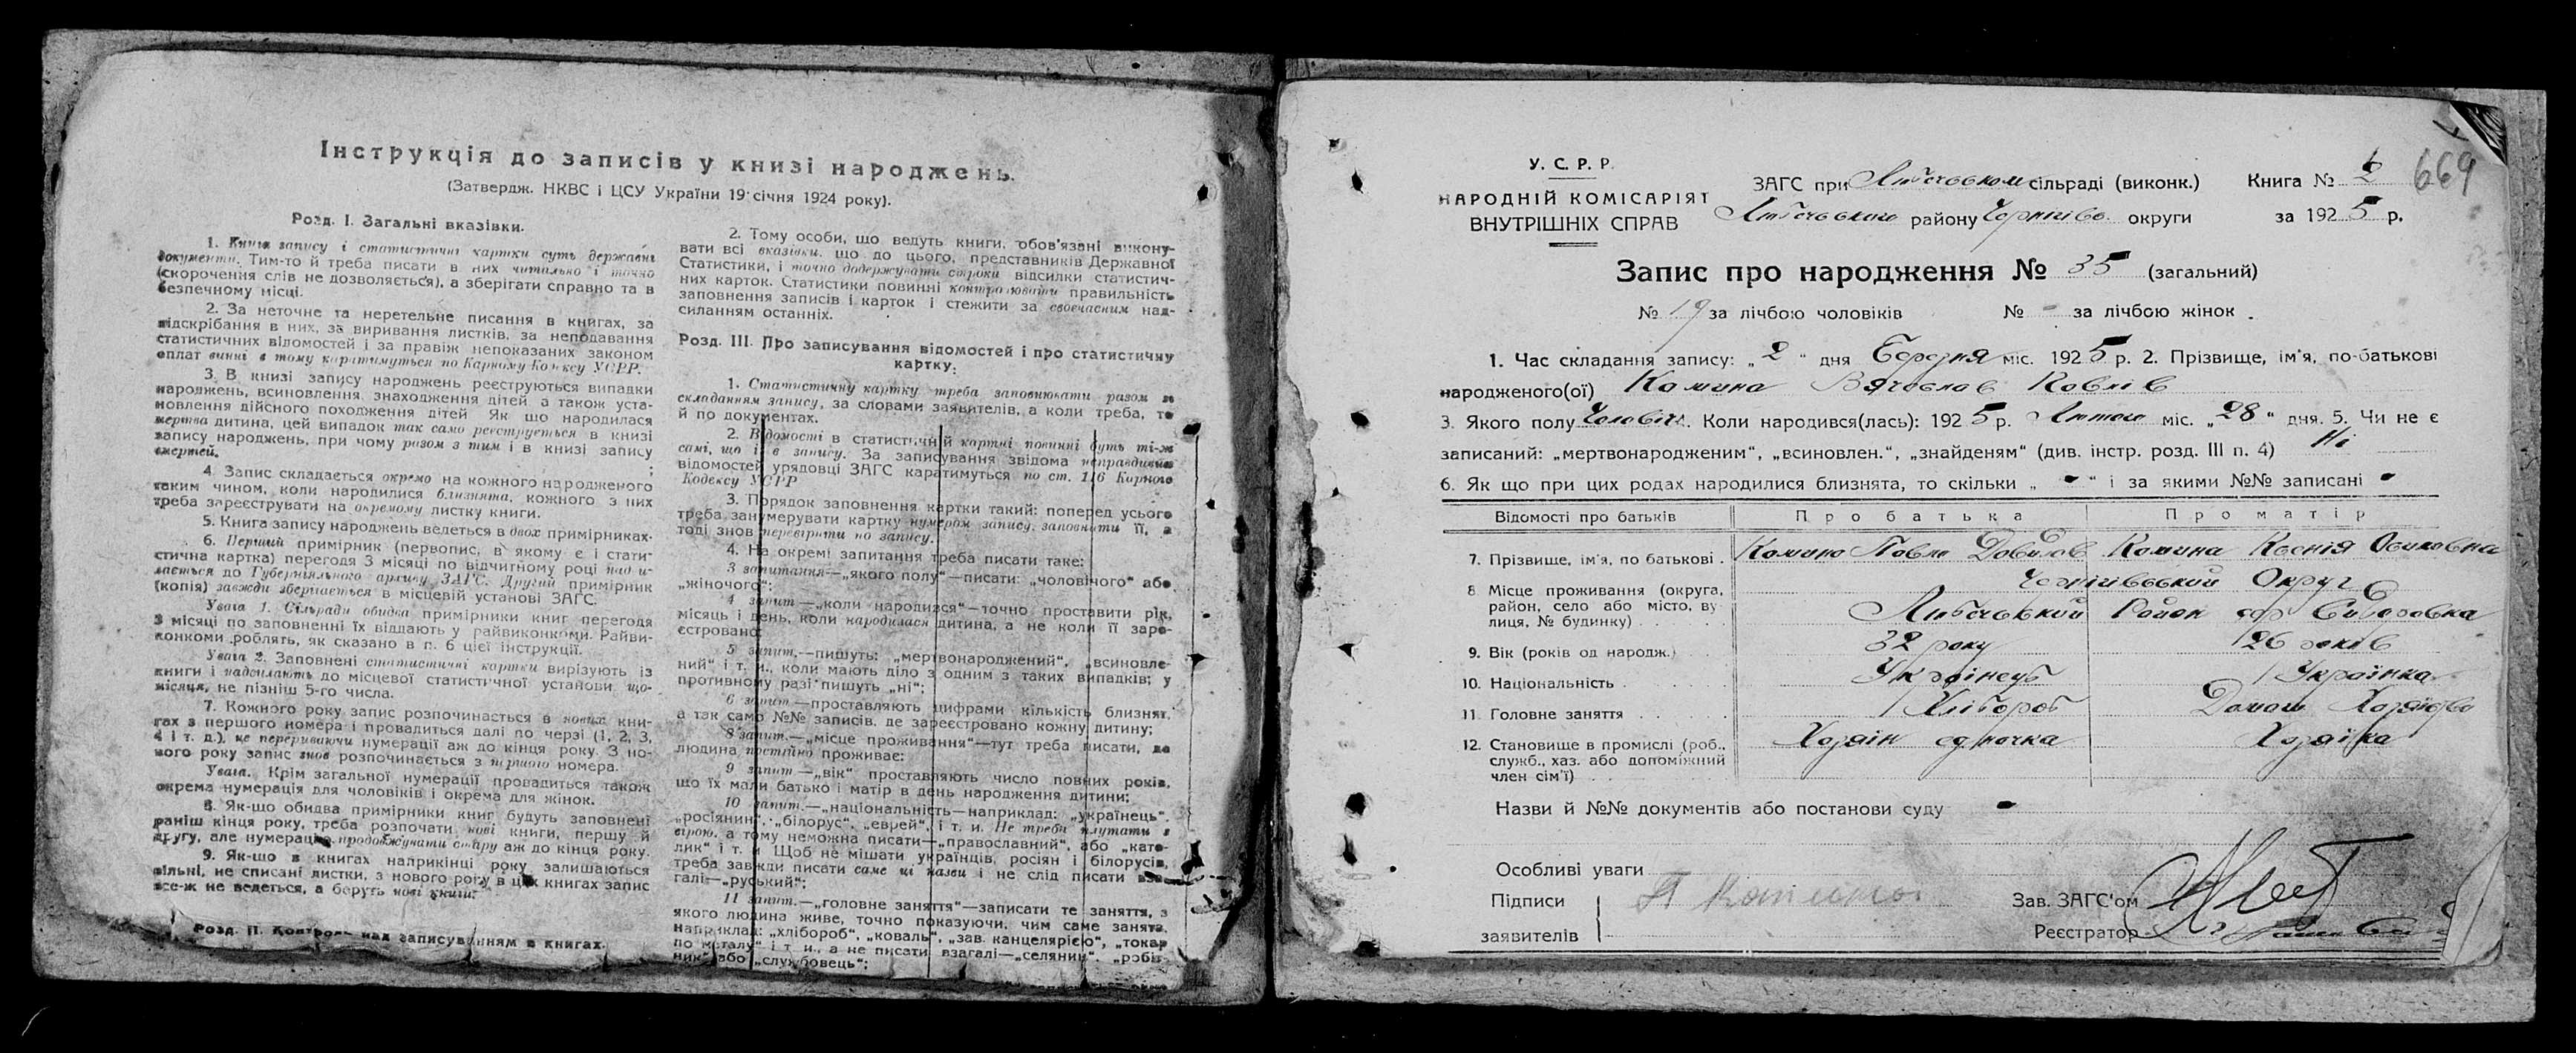 Інструкція до записів у книзі народжень.
(Затвердж. НКВС і ЦСУ України 19 січня 1924 року).
Розд. І. Загальні вказівки.
1. Книга запису і статистичні картки суть державні
документи. Тим-то й треба писати в них читально і точно
(скорочення слів не дозволяється), а зберігати справно та в
безпечному місці.
2. За неточне та неретельне писання в книгах, за
підскрібання в них, за виривання листків, за неподавання
статистичних відомостей і за правіж непоказаних законом
оплат винні в тому каратимуться по Карному Кодексу УСРР.
3. В книзі запису народжень реєструються випадки
народжень, всиновлення, знаходження дітей а також уста-
новлення дійсного походження дітей Як що народилася
мертва дитина, цей випадок так само реєструється в книзі
запису народжень, при чому разом з тим і в книзі запису
смертей.
4. Запис складається окремо на кожного народженого
таким чином, коли народилися близнята, кожного з них
треба зареєструвати на окремому листку книги.
5. Книга запису народжень ведеться в двох примірниках.
6. Перший примірник (первопис, в якому є і стати-
стична картка) перегодя 3 місяці по відчитному році надси-
лається до Губерніяльного архиву ЗАГС. Другий примірник
(копія) завжди зберігається в місцевій установі ЗАГС.
Увага 1. Сільради обидва примірники книг перегодя
3 місяці по заповненні їх віддають у райвиконкоми. Райви-
конкоми роблять, як сказано в п. 6 цієї інструкції.
Увага 2. Заповнені статистичні картки вирізують із
книги і надсилають до місцевої статистичної установи що-
місяця, не пізніш 5-го числа.
7. Кожного року запис розпочинається в нових кни-
гах з першого номера і провадиться далі по черзі (1, 2, 3,
4 і т. д.), не перериваючи нумерації аж до кінця року. З но-
вого року запис знов розпочинається з першого номера.
Увага. Крім загальної нумерації провадиться також
окрема нумерація для чоловіків і окрема для жінок.
8. Як-що обидва примірники книг будуть заповнені
раніш кінця року, треба розпочати нові книги, першу й
другу, але нумерацію продовжувати стару аж до кінця року.
9. Як-що в книгах наприкінці року залишаються
вільні, не списані листки, з нового року в цих книгах запис
все-ж не ведеться, а беруть нові книги.
Розд. ІІ. Контроль над записуванням в книгах.
2. Тому особи, що ведуть книги, обов'язані викону-
вати всі вказівки, що до цього, представників Державної
Статистики, і точно додержувати строки відсилки статистич-
них карток. Статистики повинні контролювати правильність
заповнення записів і карток і стежити за своєчасним над-
силанням останніх.
Розд. III. Про записування відомостей і про статистичну
картку.
1. Статистичну картку треба заповнювати разом зі
складанням запису, за словами заявителів, а коли треба, то
й по документах.
2. Відомості в статистичній картці повинні буть ті-ж
самі, що і в запису. За записування звідома неправдивих
відомостей урядовці ЗАГС каратимуться по ст. 116 Карного
Кодексу УСРР
3. Порядок заповнення картки такий: поперед усього
треба занумерувати картку нумером запису, заповнити її, а
тоді знов перевірити по запису.
4. На окремі запитання треба писати таке:
3 запитання—„якого полу“—писати: „чоловічого“ або
„жіночого“;
4 запит.—„коли народився“—точно проставити рік,
місяць і день, коли народилася дитина, а не коли її заре-
єстровано;
5 запит.—пишуть: „мертвонароджений“, „всиновле-
ний“ і т. и., коли мають діло з одним з таких випадків; у
противному разі пишуть „ні“;
6 запит.—проставляють цифрами кількість близнят,
а так само №№ записів, де зареєстровано кожну дитину;
8 запит.—„місце проживання“—тут треба писати, де
людина постійно проживає;
9 запит.—„вік“ проставляють число повних років,
що їх мали батько і матір в день народження дитини;
10 запит.—„національність—наприклад: „українець“,
„росіянин“, „білорус“, „еврей“, і т. и. Не треба плутати з
вірою, а тому неможна писати—„православний“, або „като-
лик“ і т. и Щоб не мішати українців, росіян і білорусів,
треба завжди писати саме ці назви і не слід писати вза-
галі—„руський“;
11 запит.—„головне заняття“—записати те заняття, з
якого людина живе, точно показуючи, чим саме занята,
наприклад: „хлібороб“, „коваль“, „зав. канцелярією“, „токар
по металу“ і т. и., а не писати взагалі—„селянин“, „робіт-
ник“ або „службовець“;
У. С. Р. Р.
НАРОДНІЙ КОМІСАРІЯТ
ВНУТРІШНІХ СПРАВ
ЗАГС при Любечськом сільраді (виконк.) Книга № 2
669
Любечського району Чернігівс. округи за 1925 р.
Запис про народження № 35 (загальний)
№ 19 за лічбою чоловіків № - за лічбою жінок
1. Час складання запису: „2“ дня Березня міс. 1925 р. 2. Прізвище, ім'я, по-батькові
народженого(ої) Комина Вячеслав Павлів
3. Якого полу Чоловіч. Коли народився(лась): 1925 р. Лютого міс. „28“ дня. 5. Чи не є
записаний: „мертвонародженим“, „всиновлен.“, „знайденям“ (див. інстр. розд. III п. 4) Ні
6. Як що при цих родах народилися близнята, то скільки „ - “ і за якими №№ записані -
Відомості про батьків Про батька Про матір
7. Прізвище, ім'я, по батькові . Комино Павло Довидов Комина Ксенія
8. Місце проживання (округа, Чернігівський Округ
район, село або місто, ву-
лиця, № будинку) . . Любечський Район
9. Вік (років од народж.) 32 року 26 років
10. Національність . Українець Українка
11. Головне заняття . . . . Хлібороб Домаш Хозяйство
12. Становище в промислі (роб., Хозяін одиночка Хозяйка
служб., хаз. або допоміжний
член сім'ї) . .
Назви й №№ документів або постанови суду -
Особливі уваги
Підписи
заявителів
Зав. ЗАГС'ом
Реєстратор